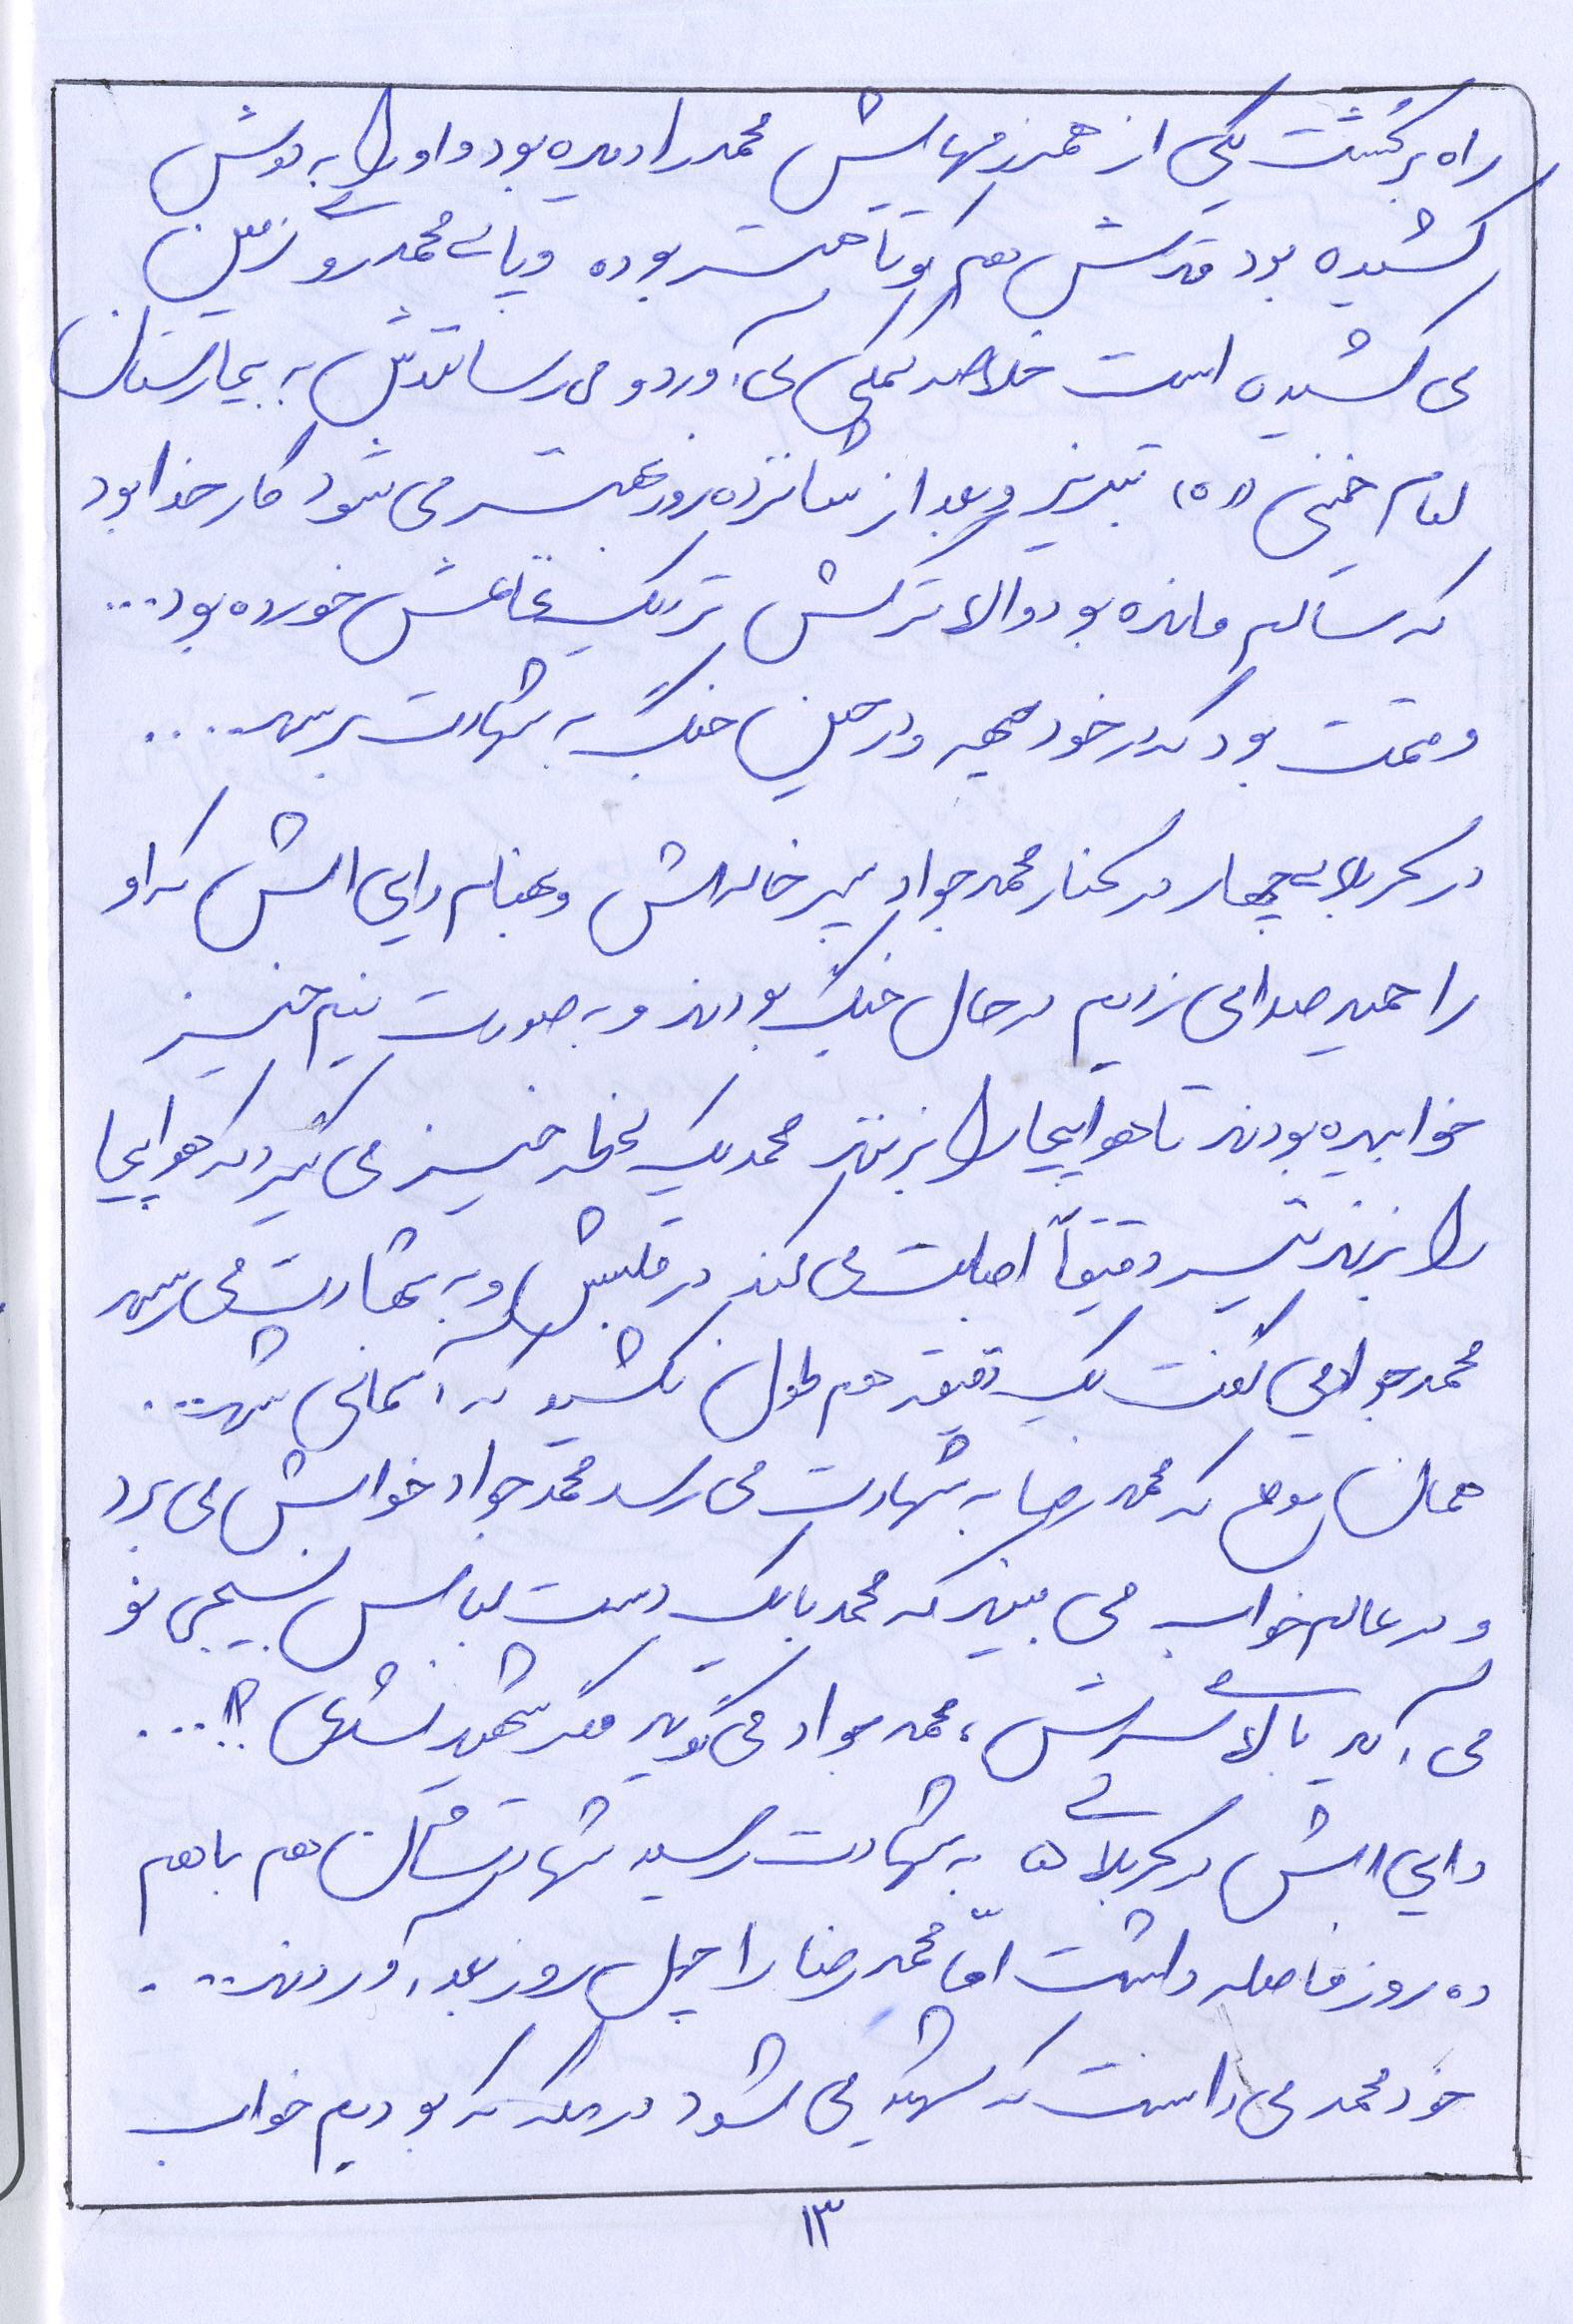 راه برگشت یکی از همرزمهایش محمد را دیده بود و او را به دوش
کشیده بود قدش هم کوتاهتر بوده و پای محمد روی زمین
می کشیده است خلاصه کمکی می آورد و می رسانندش به بیمارستان
امام خمینی (ره) تبریز و بعد از شانزده روز بهتر می شود کار خدا بود
که سالم مانده بود والا ترکش نزدیک نخاعش خورده بود...
و قسمت بود که در خود جبهه و در حین جنگ به شهادت برسد....
در کربلای چهار در کنار محمد جواد پسر خاله اش و بهنام دایی اش که او
را حمید صدا می زدیم در حال جنگ بودند و به صورت نیم خیز
خوابیده بودند تا هواپیما را بزنند محمد یک لحظه خیز می گیرد که هواپیما
را بزند تیر دقیقاً اصابت می کند در قلبش و به شهادت می رسد
محمد جواد می گفت یک دقیقه هم طول نکشید که آسمانی شد...
همان موقع که محمد رضا به شهادت می رسد محمد جواد خوابش می برد
و در عالم خواب می بیند که محمد با یک دست لباس بسیجی نو
می آید بالای سرش، محمد جواد می گوید مگر شهید نشدی ؟!...
دایی اش در کربلای ۵ به شهادت رسید شهادتشان هم با هم
ده روز فاصله داشت امّا محمد رضا را چهل روز بعد آوردند...
خود محمد می دانست که شهید می شود در مکه که بودیم خواب
۱۳